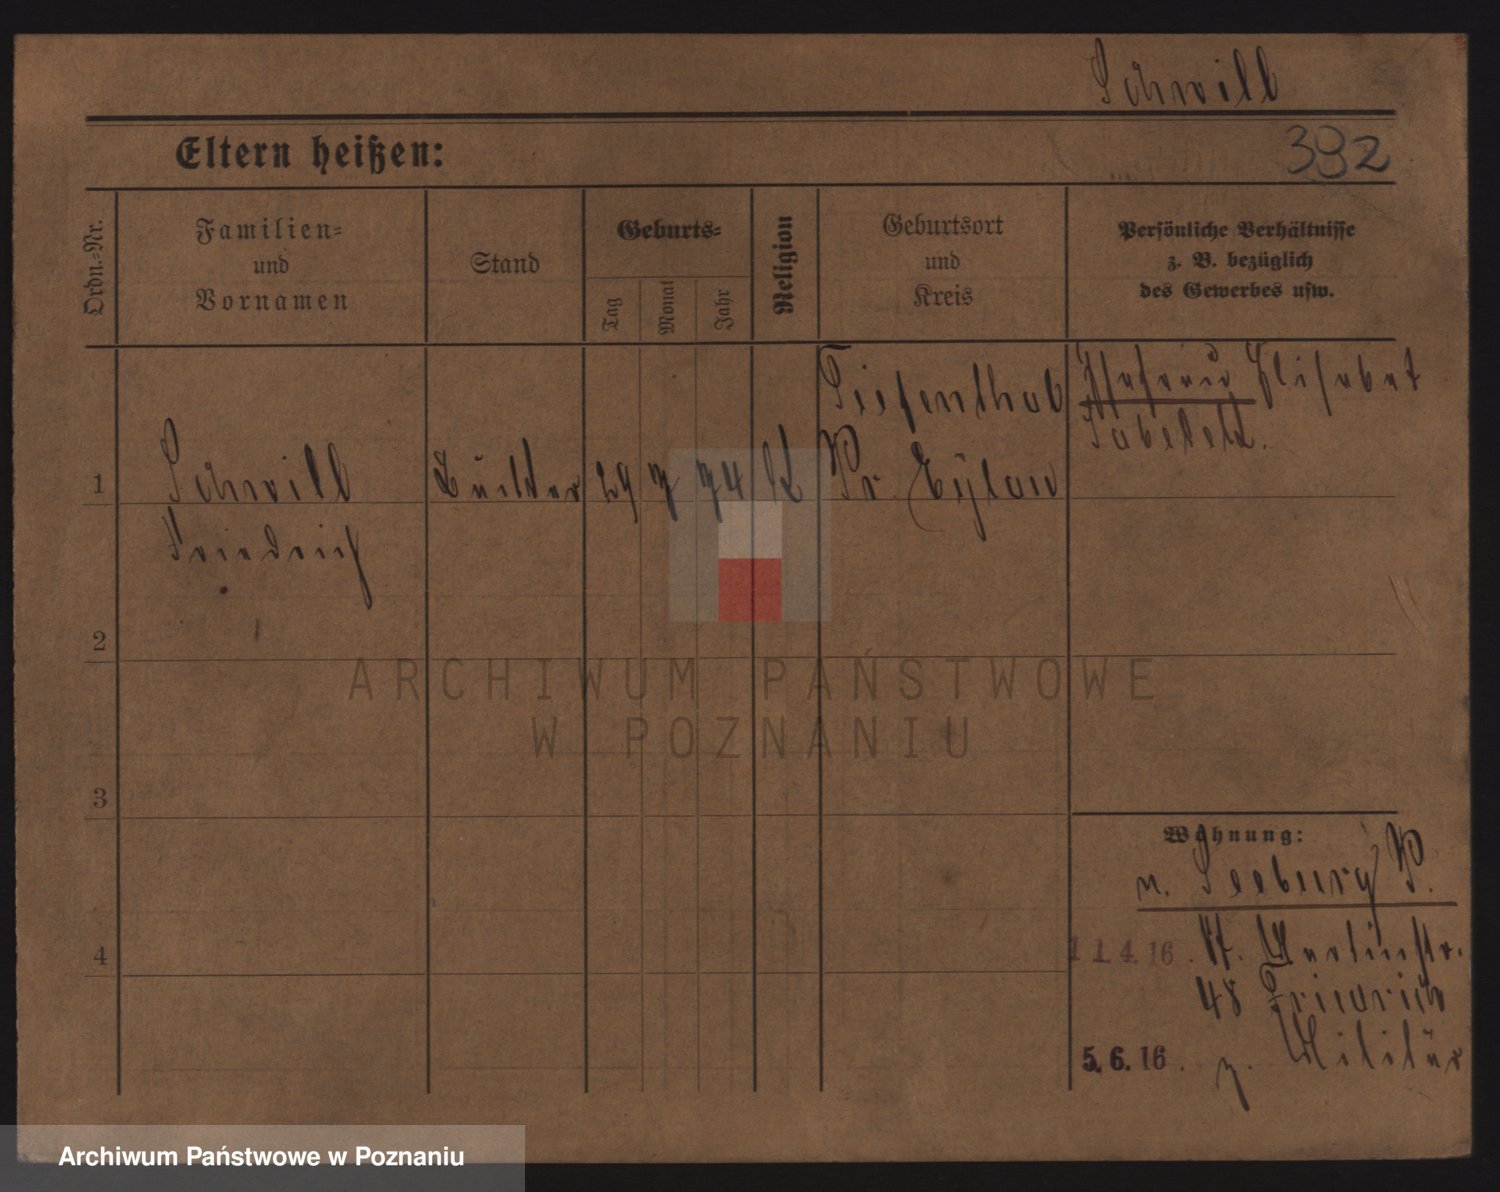 Schwill
Eltern heißen:
392
Ordn.=Nr.
Familien=
und
Vornamen
Stand
Geburts=
Tag
Monat
Jahr
Religion
Geburtsort
und
Kreis
Persönliche Verhältnisse
z. B. bezüglich
des Gewerbes usw.
Tiefenthal
Elisabet
1
Schwill
29 7 74
Pr. Eylau
Friedrich
2
3
4
Wohnung:
n. Seeburg P.
11.4.16. St. Martinstr.
48 Friedrich
5.6.16. z. Militär
ARCHIWUM PAŃSTWOWE
W POZNANIU
Archiwum Państwowe w Poznaniu